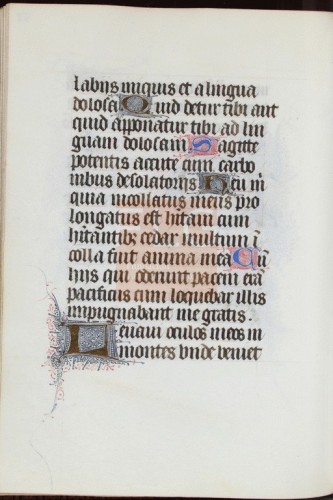 labijs iniquis et a lingua
dolosa Quid detur tibi aut
quid apponatur tibi ad lin
guam dolosam Sagitte
potentis acute cum carbo
nibus desolatorijs Heu m
quia incolatus meus pro
longatus est hitaui cum
hitantib; cedar multum ī
cola fuit anima mea Cū
hijs qui oderunt pacem erā
pacificus cum loquebar illis
impugnabant me gratis.
Leuaui oculos meos in
montes vnde veniet